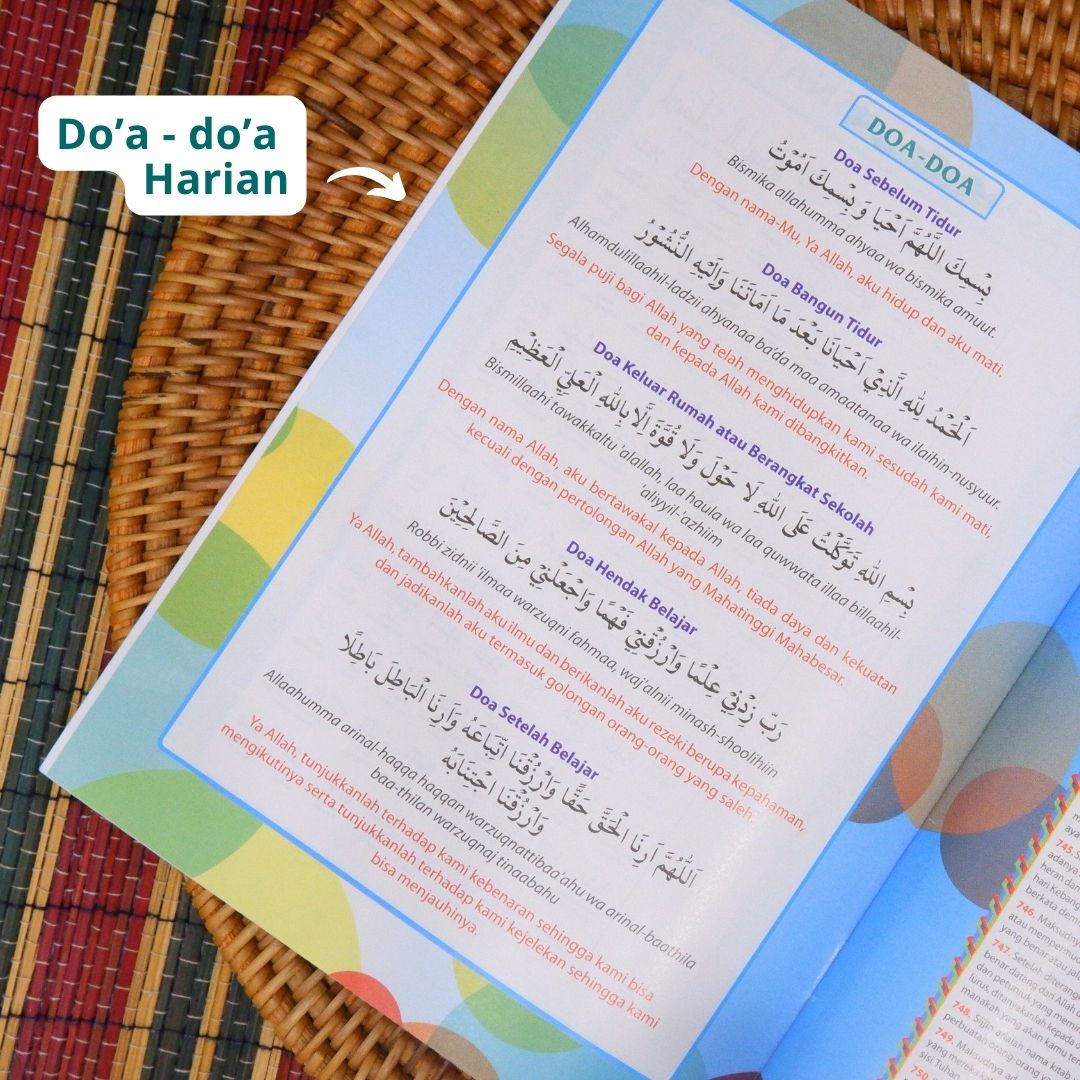 Do'a - do'a
Harian
DOA-DOA
Doa Sebelum Tidur
بِسْمِكَ اللّٰهُمَّ اَحْيَا وَ بِسْمِكَ اَمُوْتُ
Bismika allahumma ahyaa wa bismika amuut.
Dengan nama-Mu, Ya Allah, aku hidup dan aku mati.
Doa Bangun Tidur
اَلْحَمْدُ لِلّٰهِ الَّذِيْ اَحْيَانَا بَعْدَ مَا اَمَاتَنَا وَاِلَيْهِ النُّشُوْرُ
Alhamdulillaahil-ladzii ahyanaa ba'da maa amaatanaa wa ilaihin-nusyuur.
Segala puji bagi Allah yang telah menghidupkan kami sesudah kami mati,
dan kepada Allah kami dibangkitkan.
Doa Keluar Rumah atau Berangkat Sekolah
بِسْمِ اللّٰهِ تَوَكَّلْتُ عَلَى اللّٰهِ لَا حَوْلَ وَلَا قُوَّةَ اِلَّا بِاللّٰهِ الْعَلِيِّ الْعَظِيْمِ
Bismillaahi tawakkaltu 'alallah, laa haula wa laa quwwata illaa billaahil-
'aliyyil-'azhiim
Dengan nama Allah, aku bertawakal kepada Allah, tiada daya dan kekuatan
kecuali dengan pertolongan Allah yang Mahatinggi Mahabesar.
Doa Hendak Belajar
رَبِّ زِدْنِيْ عِلْمًا وَارْزُقْنِيْ فَهْمًا وَاجْعَلْنِيْ مِنَ الصَّالِحِيْنَ
Robbi zidnii 'ilmaa warzuqni fahmaa, waj'alnii minash-shoolihiin
Ya Allah, tambahkanlah aku ilmu dan berikanlah aku rezeki berupa kepahaman,
dan jadikanlah aku termasuk golongan orang-orang yang saleh.
Doa Setelah Belajar
اَللّٰهُمَّ اَرِنَا الْحَقَّ حَقًّا وَارْزُقْنَا اتِّبَاعَهُ وَاَرِنَا الْبَاطِلَ بَاطِلًا
وَارْزُقْنَا اجْتِنَابَهُ
Allaahumma arinal-haqqa haqqan warzuqnattibaa'ahu wa arinal-baathila
baa-thilan warzuqnaj tinaabahu
Ya Allah, tunjukkanlah terhadap kami kebenaran sehingga kami bisa
mengikutinya serta tunjukkanlah terhadap kami kejelekan sehingga kami
bisa menjauhinya.
745.
adanya
heran dan
hari Kebang
berkata dem
746. Maksudny
atau mempermud
yang benar atau jal
747. Setelah diterang
benar datang dari Allah
dan petunjuk yang memim
lurus, ditanyakanlah kepada
manakah yang akan kamu te
748. Sijjin adalah nama kitab
perbuatan orang-orang
749. Maksudnya
yang mereka
sisi Tuhan
750